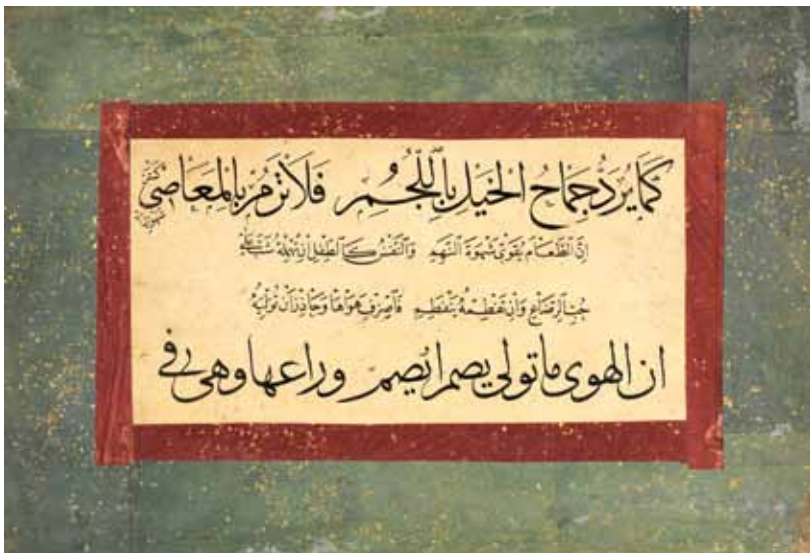 كَمَا يُرَدُّ جِمَاحُ الْخَيْلِ بِاللُّجُمِ فَلَا تَرُمْ بِالْمَعَاصِي كَسْرَ شَهْوَتِهَا
اِنَّ الطَّعَامَ يُقَوِّي شَهْوَةَ النَّهِمِ وَالنَّفْسُ كَالطِّفْلِ اِنْ تُهْمِلْهُ شَبَّ عَلَى
حُبِّ الرَّضَاعِ وَاِنْ تَفْطِمْهُ يَنْفَطِمِ فَاصْرِفْ هَوَاهَا وَحَاذِرْ اَنْ تُوَلِّيَهُ
ان الهوى ما تولى يصم او يصم وراعها وهى فى